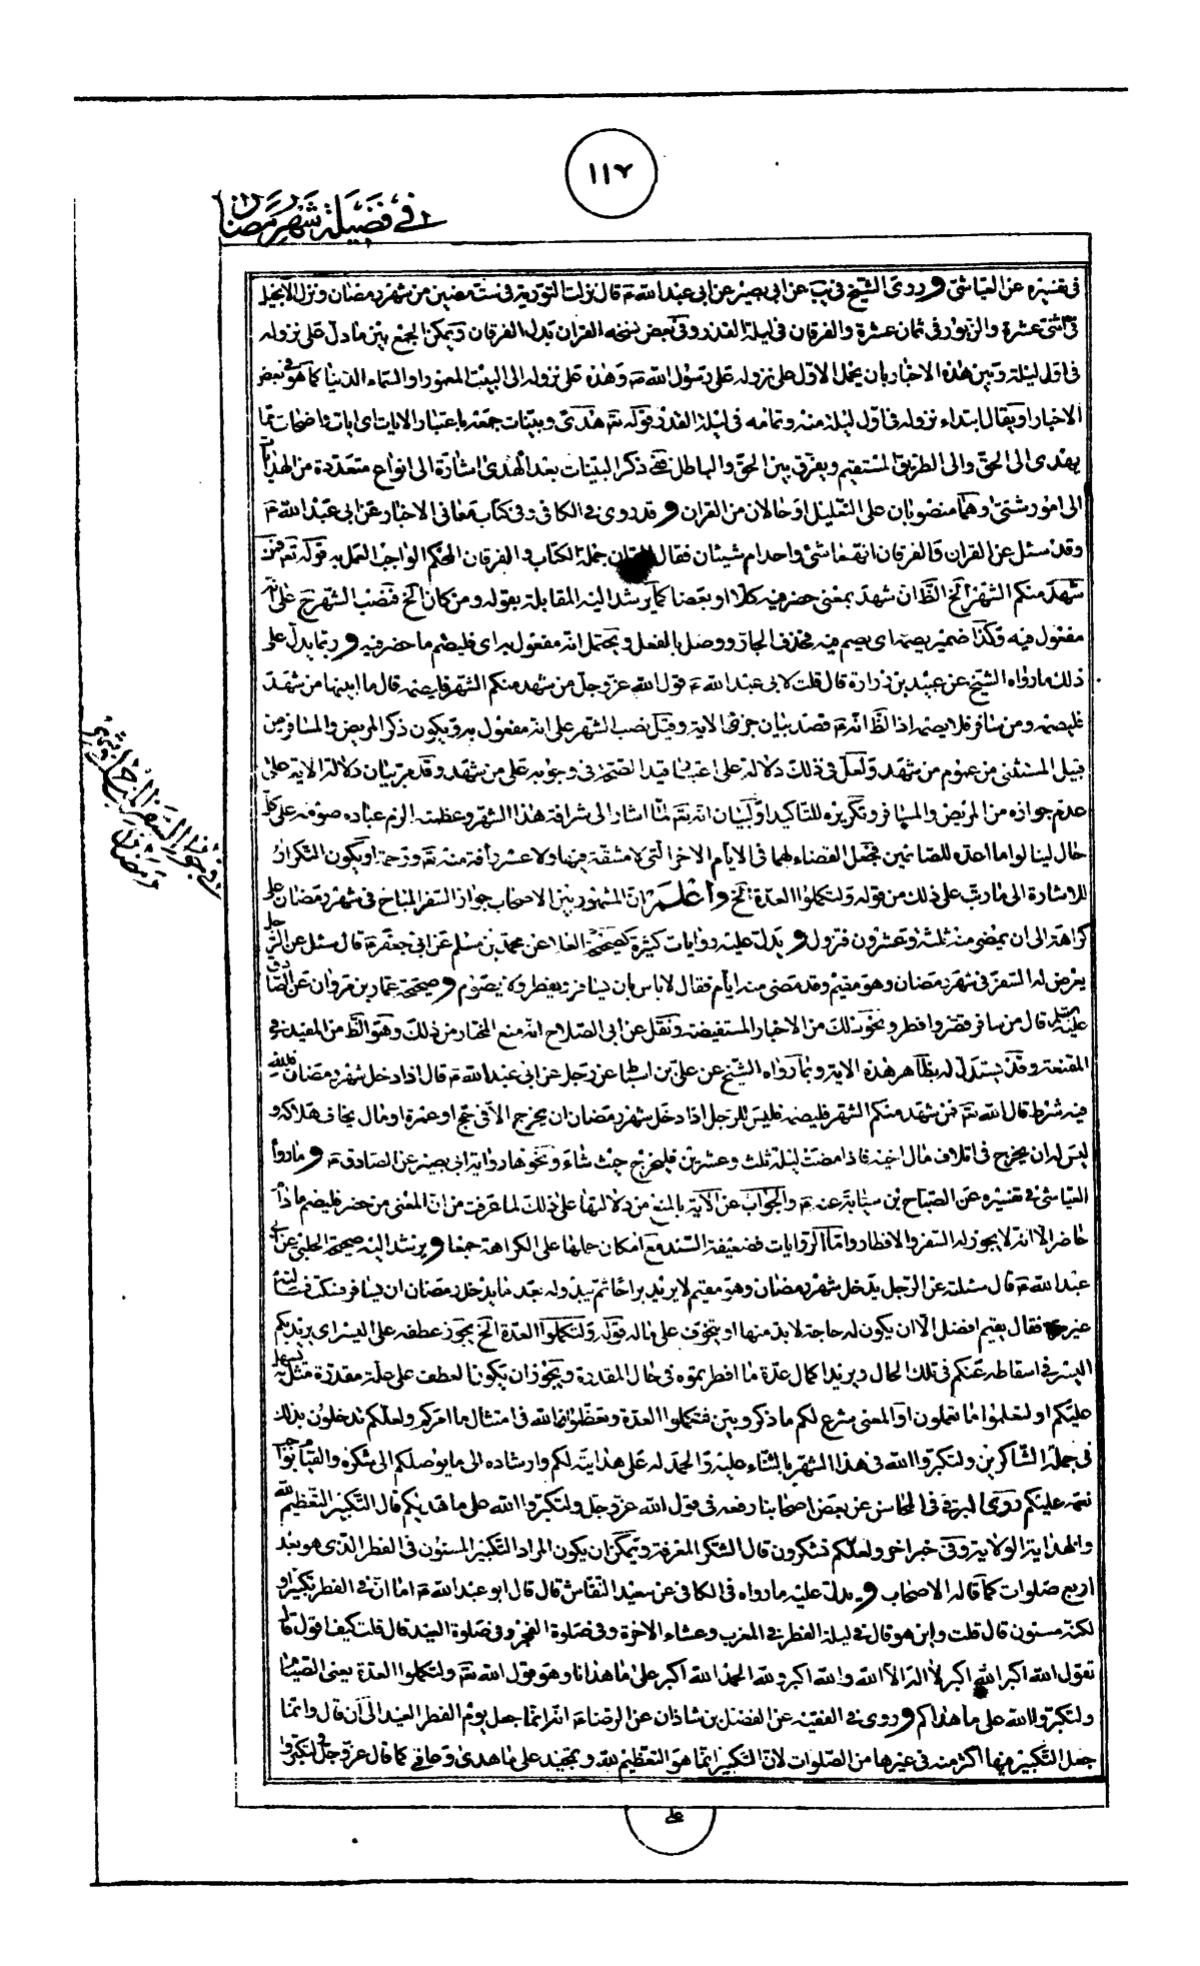 ١١٧
في فضيلة شهر رمضان
في تفسيره عن العياشي وروى الشيخ في يب عن ابي بصير عن ابي عبد الله ع قال نزلت التورية في ست مضين من شهر رمضان ونزل الانجيل
في اثنتي عشرة والزبور في ثمان عشرة والفرقان في ليلة القدر وفي بعض نسخه القران بدل الفرقان ويمكن الجمع بين ما دل على نزوله
في اول ليلة وبين هذه الاخبار بان يحمل الاول على نزوله على رسول الله ص وهذه على نزوله الى البيت المعمور او السماء الدنيا كما هو في بعض
الاخبار او يقال ابتداء نزوله في اول ليلة منه وتمامه في ليلة القدر قوله تع هدى وبينات جمعه باعتبار الايات اي ايات واضحات مما
يهدى الى الحق والى الطريق المستقيم ويفرق بين الحق والباطل ففي ذكر البينات بعد الهدى اشارة الى انواع متعددة من الهدايات
الى امور شتى وهما منصوبان على التعليل او حالان من القران وقد روى في الكافي وفي كتاب معاني الاخبار عن ابي عبد الله ع
وقد سئل عن القران والفرقان اهما شئ واحد ام شيئان فقال القران جملة الكتاب والفرقان المحكم الواجب العمل به قوله تع فمن
شهد منكم الشهر الخ الظ ان شهد بمعنى حضر فيه كلا او بعضا كما يرشد اليه المقابلة بقوله ومن كان الخ فنصب الشهر ح على انه
مفعول فيه وكذا ضمير يصمه اي يصم فيه فحذف الجار ووصل بالفعل ويحتمل انه مفعول به اي فليصم ما حضر فيه وربما يدل على
ذلك ما رواه الشيخ عن عبيد بن زرارة قال قلت لابي عبد الله ع قول الله عز وجل من شهد منكم الشهر فليصمه قال ما ابينها من شهد
فليصمه ومن سافر فلا يصمه اذ الظ انه ع قصد بيان جزئي الاية وقيل نصب الشهر على انه مفعول به ويكون ذكر المريض والمسافر من
قبيل المستثنى من عموم من شهد ولعل في ذلك دلالة على اعتبار قيد الصحة في وجوبه على من شهد وقد مر بيان دلالة الاية على
عدم جوازه من المريض والمسافر وتكريره للتاكيد او لبيان انه تع لما اشار الى شرافة هذا الشهر وعظمته الزم عباده صومه على كل
حال لينالوا ما اعده للصائمين فجعل القضاء لهما في الايام الاخر التي لا مشقة فيها ولا عسر رأفة منه تع ورحمة او يكون التكرار
للاشارة الى ما رتب على ذلك من قوله ولتكملوا العدة الخ واعلم ان المشهور بين الاصحاب جواز السفر المباح في شهر رمضان على
كراهة الى ان يمضي منه ثلثة وعشرون فتزول ويدل عليه روايات كثيرة كصحيحة العلا عن محمد بن مسلم عن ابي جعفر ع قال سئل عن الرجل
يعرض له السفر في شهر رمضان وهو مقيم وقد مضى منه ايام فقال لا باس بان يسافر ويفطر ولا يصوم وصحيحة عمار بن مروان عن الصادق
عليه السلم قال من سافر قصر وافطر ونحو ذلك من الاخبار المستفيضة ونقل عن ابي الصلاح انه منع المختار من ذلك وهو الظ من المفيد في
المقنعة وقد يستدل له بظاهر هذه الاية وبما رواه الشيخ عن علي بن اسباط عن رجل عن ابي عبد الله ع قال اذا دخل شهر رمضان فلله
فيه شرط قال الله تع فمن شهد منكم الشهر فليصمه فليس للرجل اذا دخل شهر رمضان ان يخرج الا في حج او عمرة او مال يخاف هلاكه و
ليس له ان يخرج في اتلاف مال اخيه فاذا مضت ليلة ثلث وعشرين فليخرج حيث شاء ونحوها رواية ابي بصير عن الصادق ع وما رواه
العياشي في تفسيره عن الصباح بن سيابة عنه ع والجواب عن الاية بالمنع من دلالتها على ذلك لما عرفت من ان المعنى من حضر فليصم ما دام
حاضرا لا انه لا يجوز له السفر والافطار واما الروايات فضعيفة السند مع امكان حملها على الكراهة جمعا ويرشد اليه صحيحة الحلبي عن ابي
عبد الله ع قال سئلته عن الرجل يدخل شهر رمضان وهو مقيم لا يريد براحا ثم يبدو له بعد ما يدخل رمضان ان يسافر فسكت فسألته
غير مرة فقال يقيم افضل الا ان يكون له حاجة لا بد منها او يتخوف على ماله قوله ولتكملوا العدة الخ يجوز عطفه على اليسر اي يريد بكم
اليسر في اسقاطه عنكم في تلك الحال ويريد اكمال عدة ما افطرتموه في حال المقدرة ويجوز ان يكون العطف على علة مقدرة مثل ليسهل
عليكم او لتعلموا ما تعملون او المعنى شرع لكم ما ذكر وبين فتكملوا العدة وتعظموا الله في امتثال ما امركم ولعلكم تدخلون بذلك
في جملة الشاكرين ولتكبروا الله في هذا الشهر بالثناء عليه والحمد له على هدايته لكم وارشاده الى ما يوصلكم الى شكره والقيام بواجب
نعمه عليكم روى البرقي في المحاسن عن بعض اصحابنا رفعه في قول الله عز وجل ولتكبروا الله على ما هديكم قال التكبير التعظيم لله
والهداية الولاية وفي خبر اخر ولعلكم تشكرون قال الشكر المعرفة ويمكن ان يكون المراد التكبير المسنون في الفطر الذي هو بعد
اربع صلوات كما قاله الاصحاب ويدل عليه ما رواه في الكافي عن سعيد النقاش قال قال ابو عبد الله ع اما ان في الفطر تكبيرا و
لكنه مسنون قال قلت واين هو قال في ليلة الفطر في المغرب وعشاء الاخرة وفي صلوة الفجر وفي صلوة العيد قال قلت كيف اقول قال
تقول الله اكبر الله اكبر لا اله الا الله والله اكبر ولله الحمد الله اكبر على ما هدانا وهو قول الله تع ولتكملوا العدة يعني الصيام
ولتكبروا الله على ما هداكم وروى في الفقيه عن الفضل بن شاذان عن الرضا ع انه انما جعل يوم الفطر العيد الى ان قال وانما
جعل التكبير فيها اكثر منه في غيرها من الصلوات لان التكبير انما هو التعظيم لله وتمجيد على ما هدى وعافى كما قال عز وجل ولتكبروا
على
في جواز السفر المباح في شهر رمضان